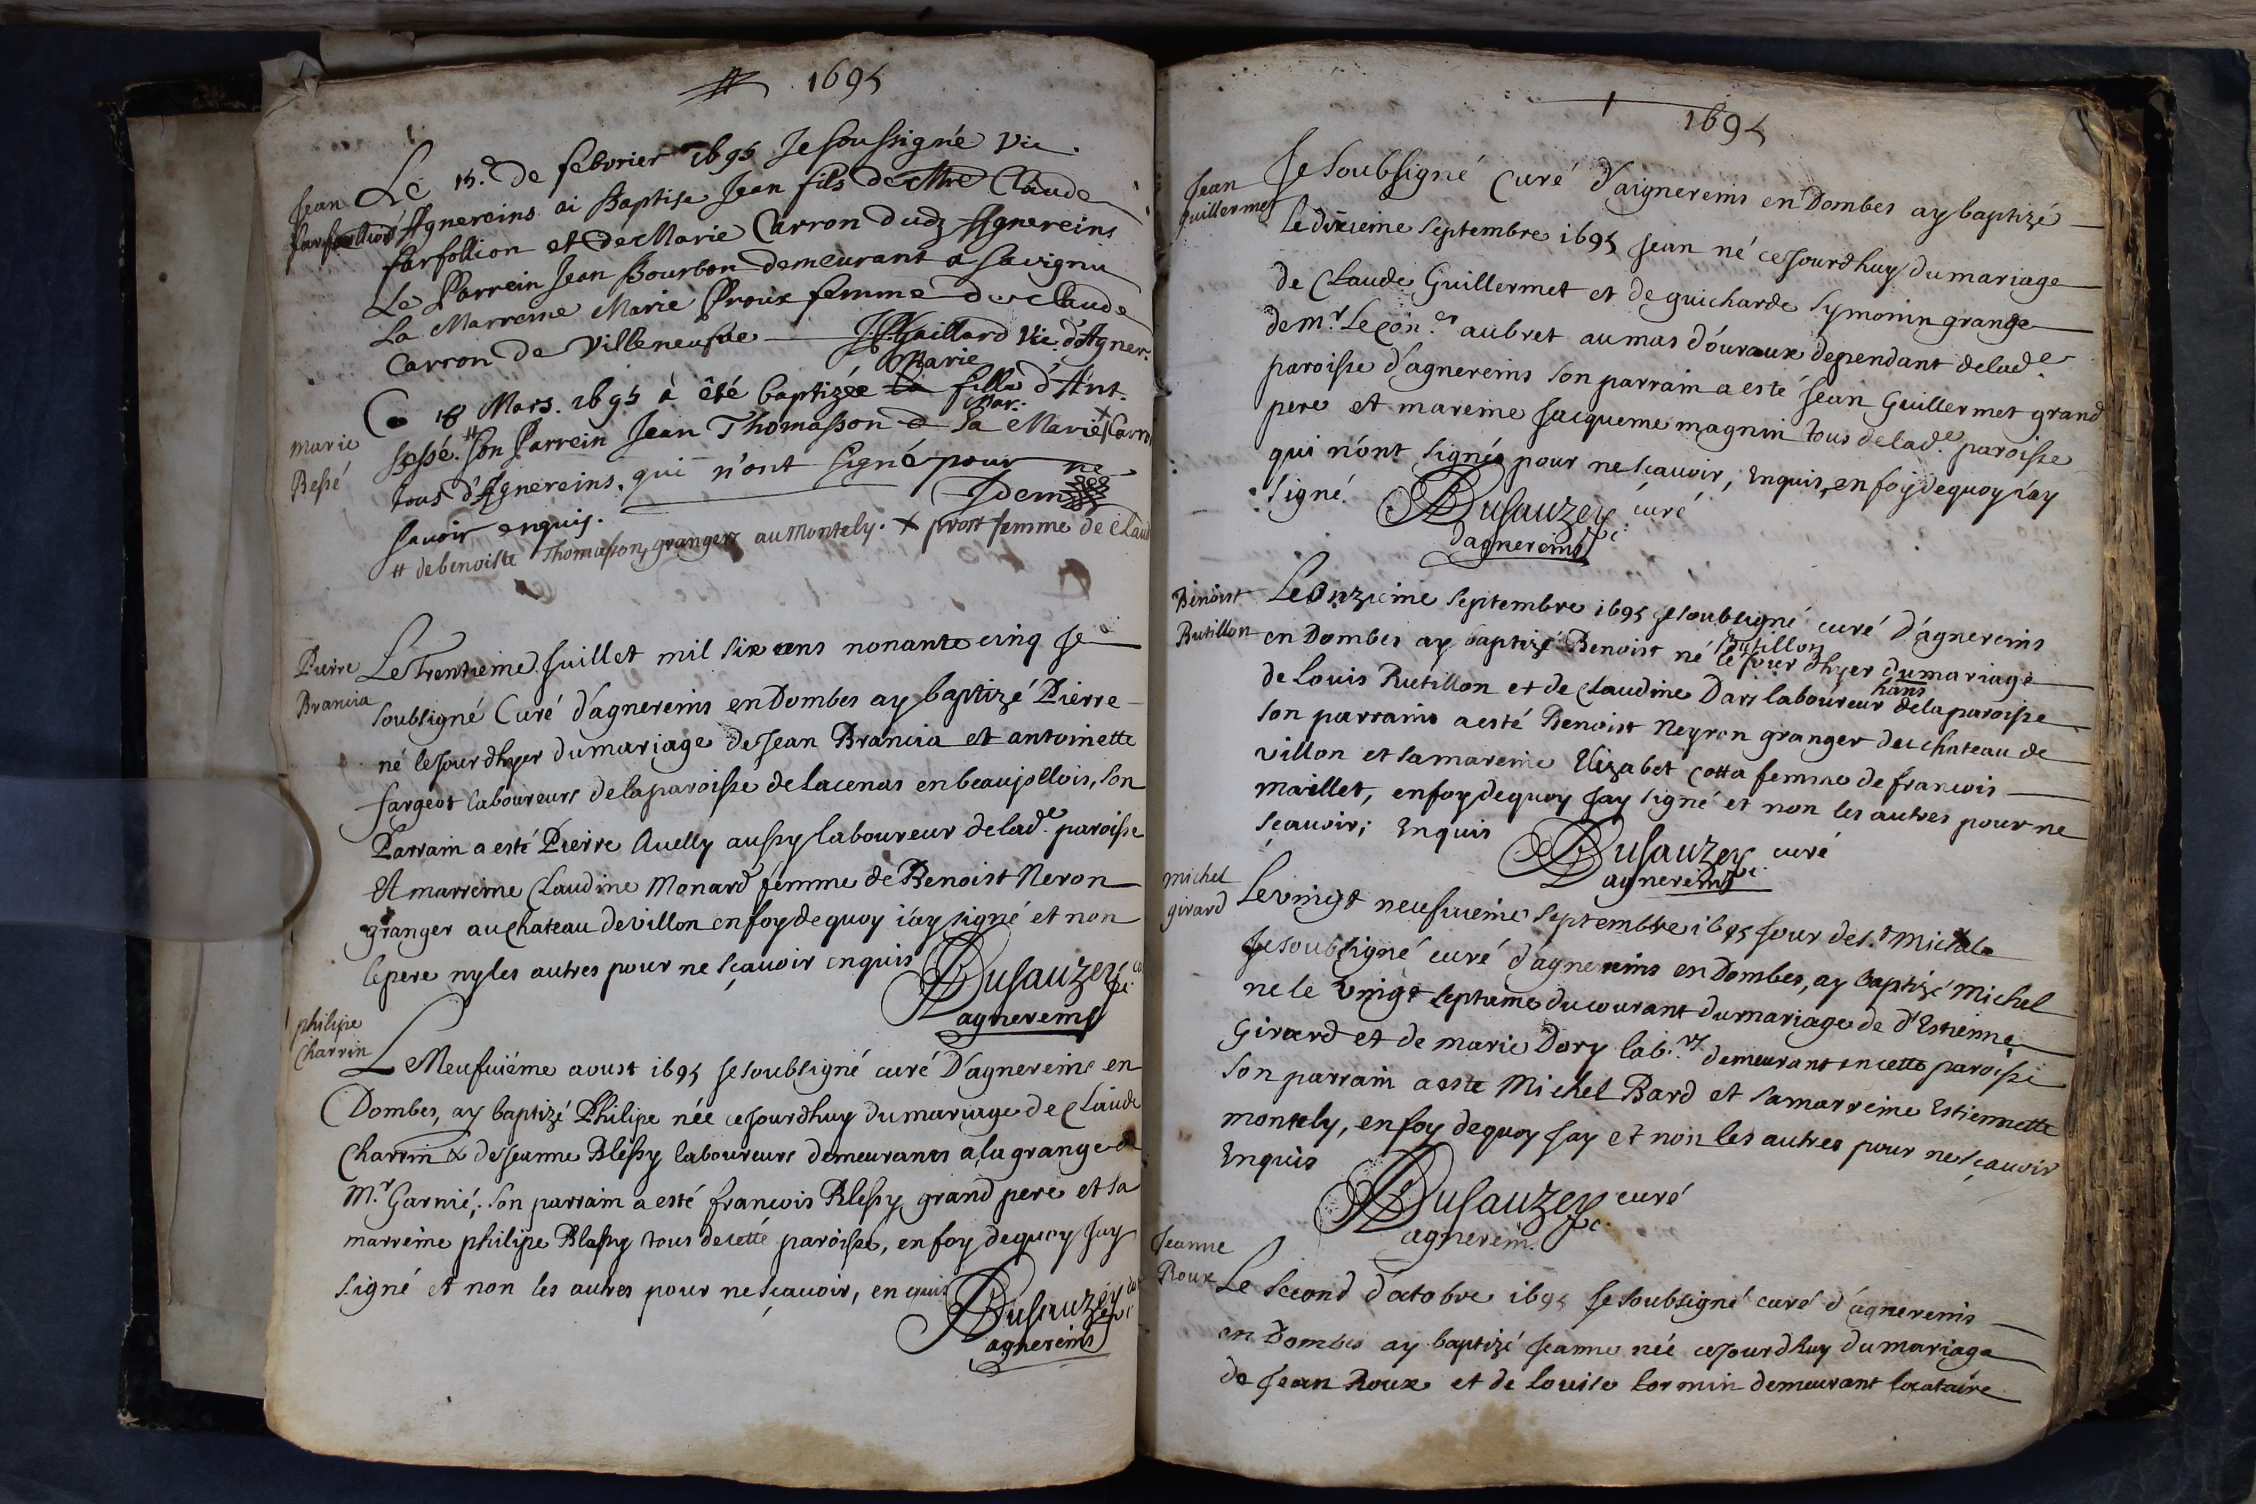 1695
Jean
farfollion
Le 15. de feborier 1695 Je soussigné Vic.
d'Agnereins ai Baptise Jean fils de Mre Claude
farfollion et de Marie Carron dudz Agnereins
Le Parrein Jean Bourbon demeurant a Savignu
La Marreine Marie Proux femme de Claude
Carron de Villeneufve J. Gaillard Vic. d'Agner.
Marie
Bessé
Ce 18 Mars. 1695 à êté baptizée Marie fille d'Ant.
Bessé. # Son Parrein Jean Thomasson Sa Mar. Marie + Carro
tous d'Agnereins. qui n'ont signé pour ne
savoir enquis. Idem
# de benoiste Thomasson, grangers au Montely. + prost femme de Claud
Pierre
Brancia
Le Trentieme Juillet mil six cens nonante cinq Je
soubsigné Curé d'agnereins en Dombes ay baptizé Pierre
né le Jour d'hyer du mariage de Jean Brancia et antoinette
fargeot laboureurs de la paroisse de lacenas en beaujollois, son
Parrain a esté Pierre Auelly aussy laboureur de lad.e paroisse
Et marreine Claudine Monard femme de Benoist Neron
granger au chateau de villon en foy de quoy i'ay signé et non
le pere ny les autres pour ne sçauoir enquis
Dusauzey
agnereins
philipe
Charrin
Le Neufuiéme aoust 1695 Je soubsigné curé D'agnereins en
Dombes, ay baptizé Philipe née ce Jourdhuy du mariage de Claude
Charrin & de Jeanne Blessy laboureurs demeurants a la grange de
M.r Garnié, son parrain a esté francois Blessy grand pere et sa
marreine philipe Blessy tous de cette paroisse, en foy de quoy Jay
signé et non les autres pour ne sçauoir, enquis
Dusauzey
agnereins
1695
Jean
guillermet
Je Soubsigné Curé d'aignereins en Dombes ay baptizé
le dixieme Septembre 1695 Jean né ce Jourdhuy du mariage
de Claude Guillermet et de guicharde Symonin grange
de m.r le con.er aubret au mas d'ouraux dependant de lad.e
paroisse d'agnereins son parrain a esté Jean Guillermet grand
pere et mareine Jacqueme magnin tous de lad.e paroisse
qui n'ont signés pour ne sçauoir, Enquis, en foy de quoy J'ay
signé. Dusauzey curé
d'agnereins
Benoist
Butillon
Le Onzieme Septembre 1695 Je soubsigné curé d'agnereins
en Dombes ay baptizé Benoist Butillon né le Jour d'hyer du mariage
de Louis Rutillon et de Claudine Dars laboureur hans de la paroisse
son parrain a esté Benoist Neyron granger du chateau de
villon et sa mareine Elizabet Cotta femme de francois
maillet, en foy de quoy Jay signé et non les autres pour ne
sçauoir; Enquis Dusauzey curé
agnereins
michel
girard
Le vingt neufuieme Septembre 1695 Jour de S.t Michel
Je soubsigné curé d'agnereins en Dombes, ay baptizé Michel
ne le vingt septieme du courant du mariage de d'Estienne
Girard et de marie Dory lab.rs demeurant en cette paroisse
son parrain a este Michel Bard et sa marreine Estiennette
montely, en foy de quoy Jay et non les autres pour ne sçauoir
Enquis Dusauzey curé
agnerein.
Jeanne
Roux
Le second d'octobre 1695 Je soubsigné curé d'agnereins
en Dombes ay baptizé Jeanne née ce Jourdhuy du mariage
de Jean Roux et de Louise Lormin demeurant locataire